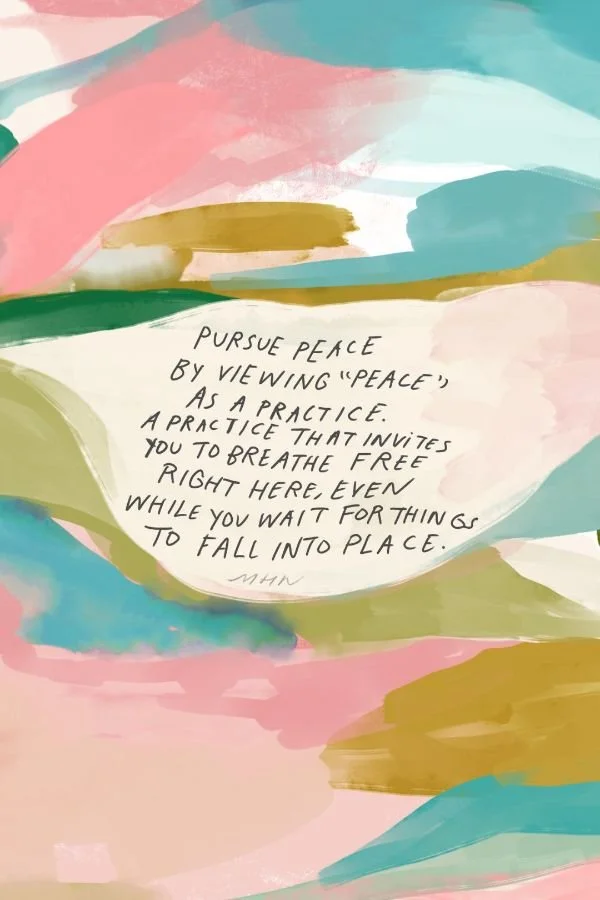 PURSUE PEACE
BY VIEWING "PEACE",
AS A PRACTICE.
A PRACTICE THAT INVITES
YOU TO BREATHE FREE
RIGHT HERE, EVEN
WHILE YOU WAIT FOR THINGS
TO FALL INTO PLACE.
MHN